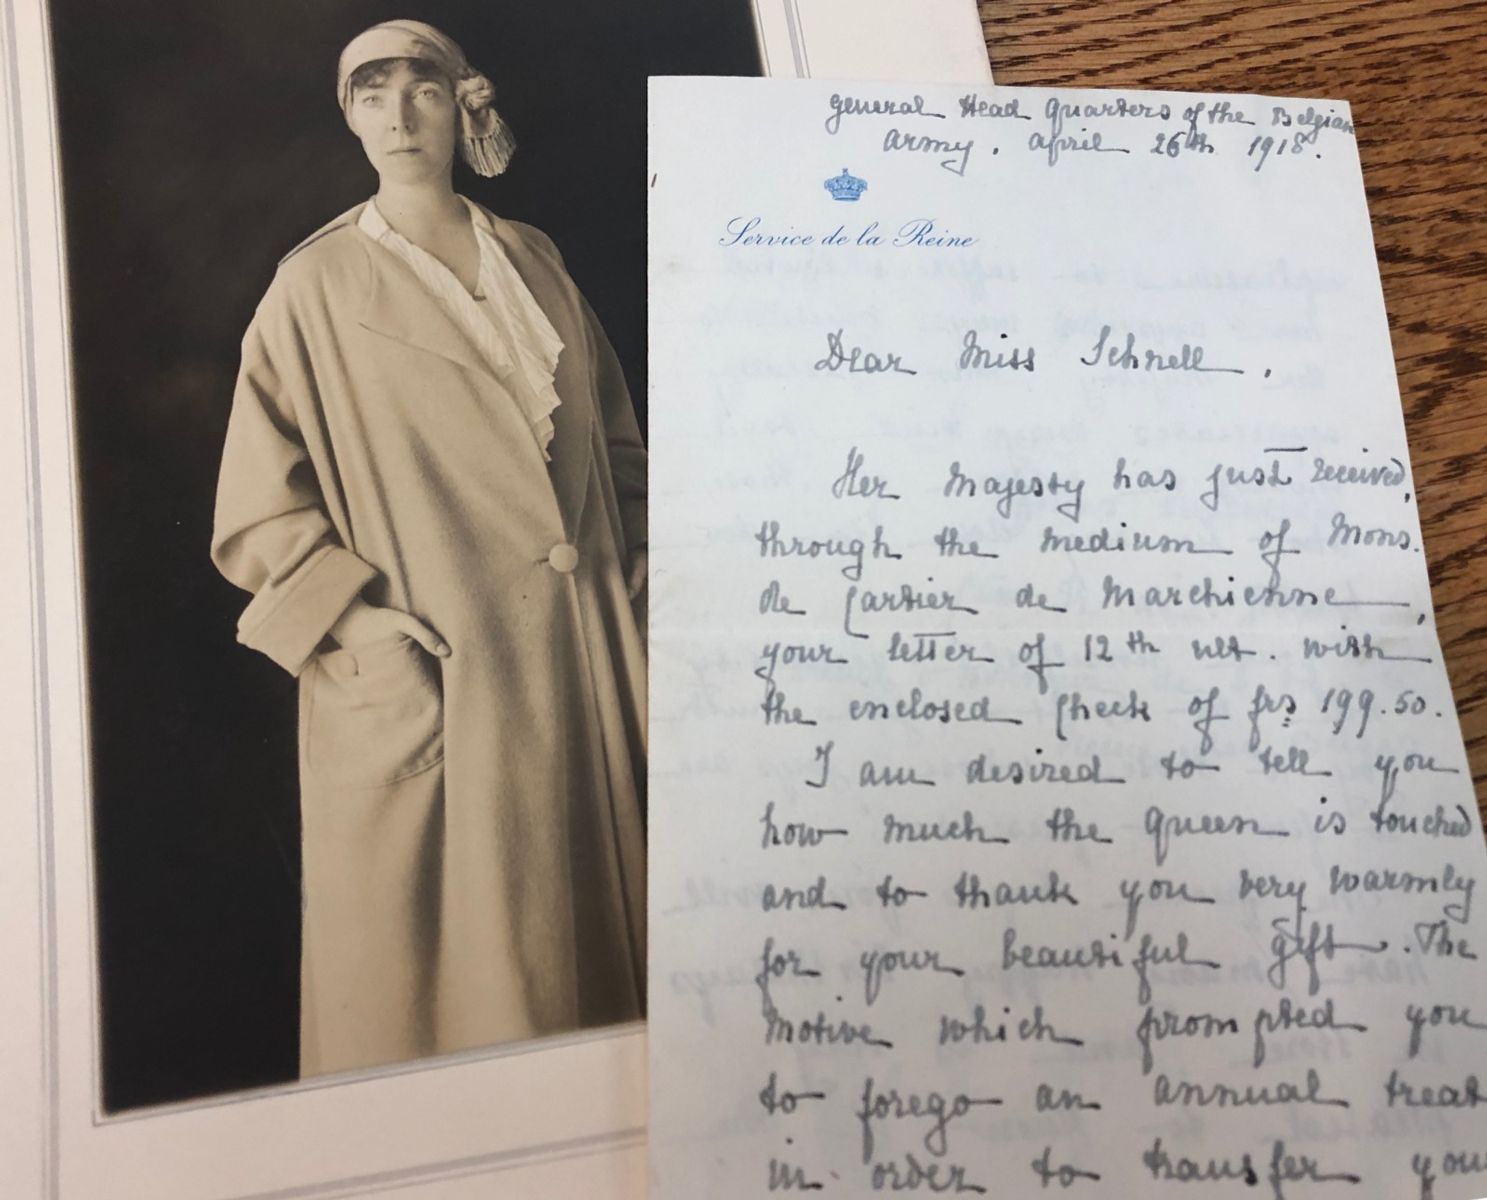 General Head Quarters of the Belgian
Army. April 26th 1918.
Service de la Reine
Dear Miss Schnell,
Her Majesty has just received,
through the medium of Mons.
de Cartier de Marchienne,
your letter of 12th ult. with
the enclosed check of frs 199.50.
I am desired to tell you
how much the Queen is touched
and to thank you very warmly
for your beautiful gift. The
motive which prompted you
to forego an annual treat
in order to transfer your